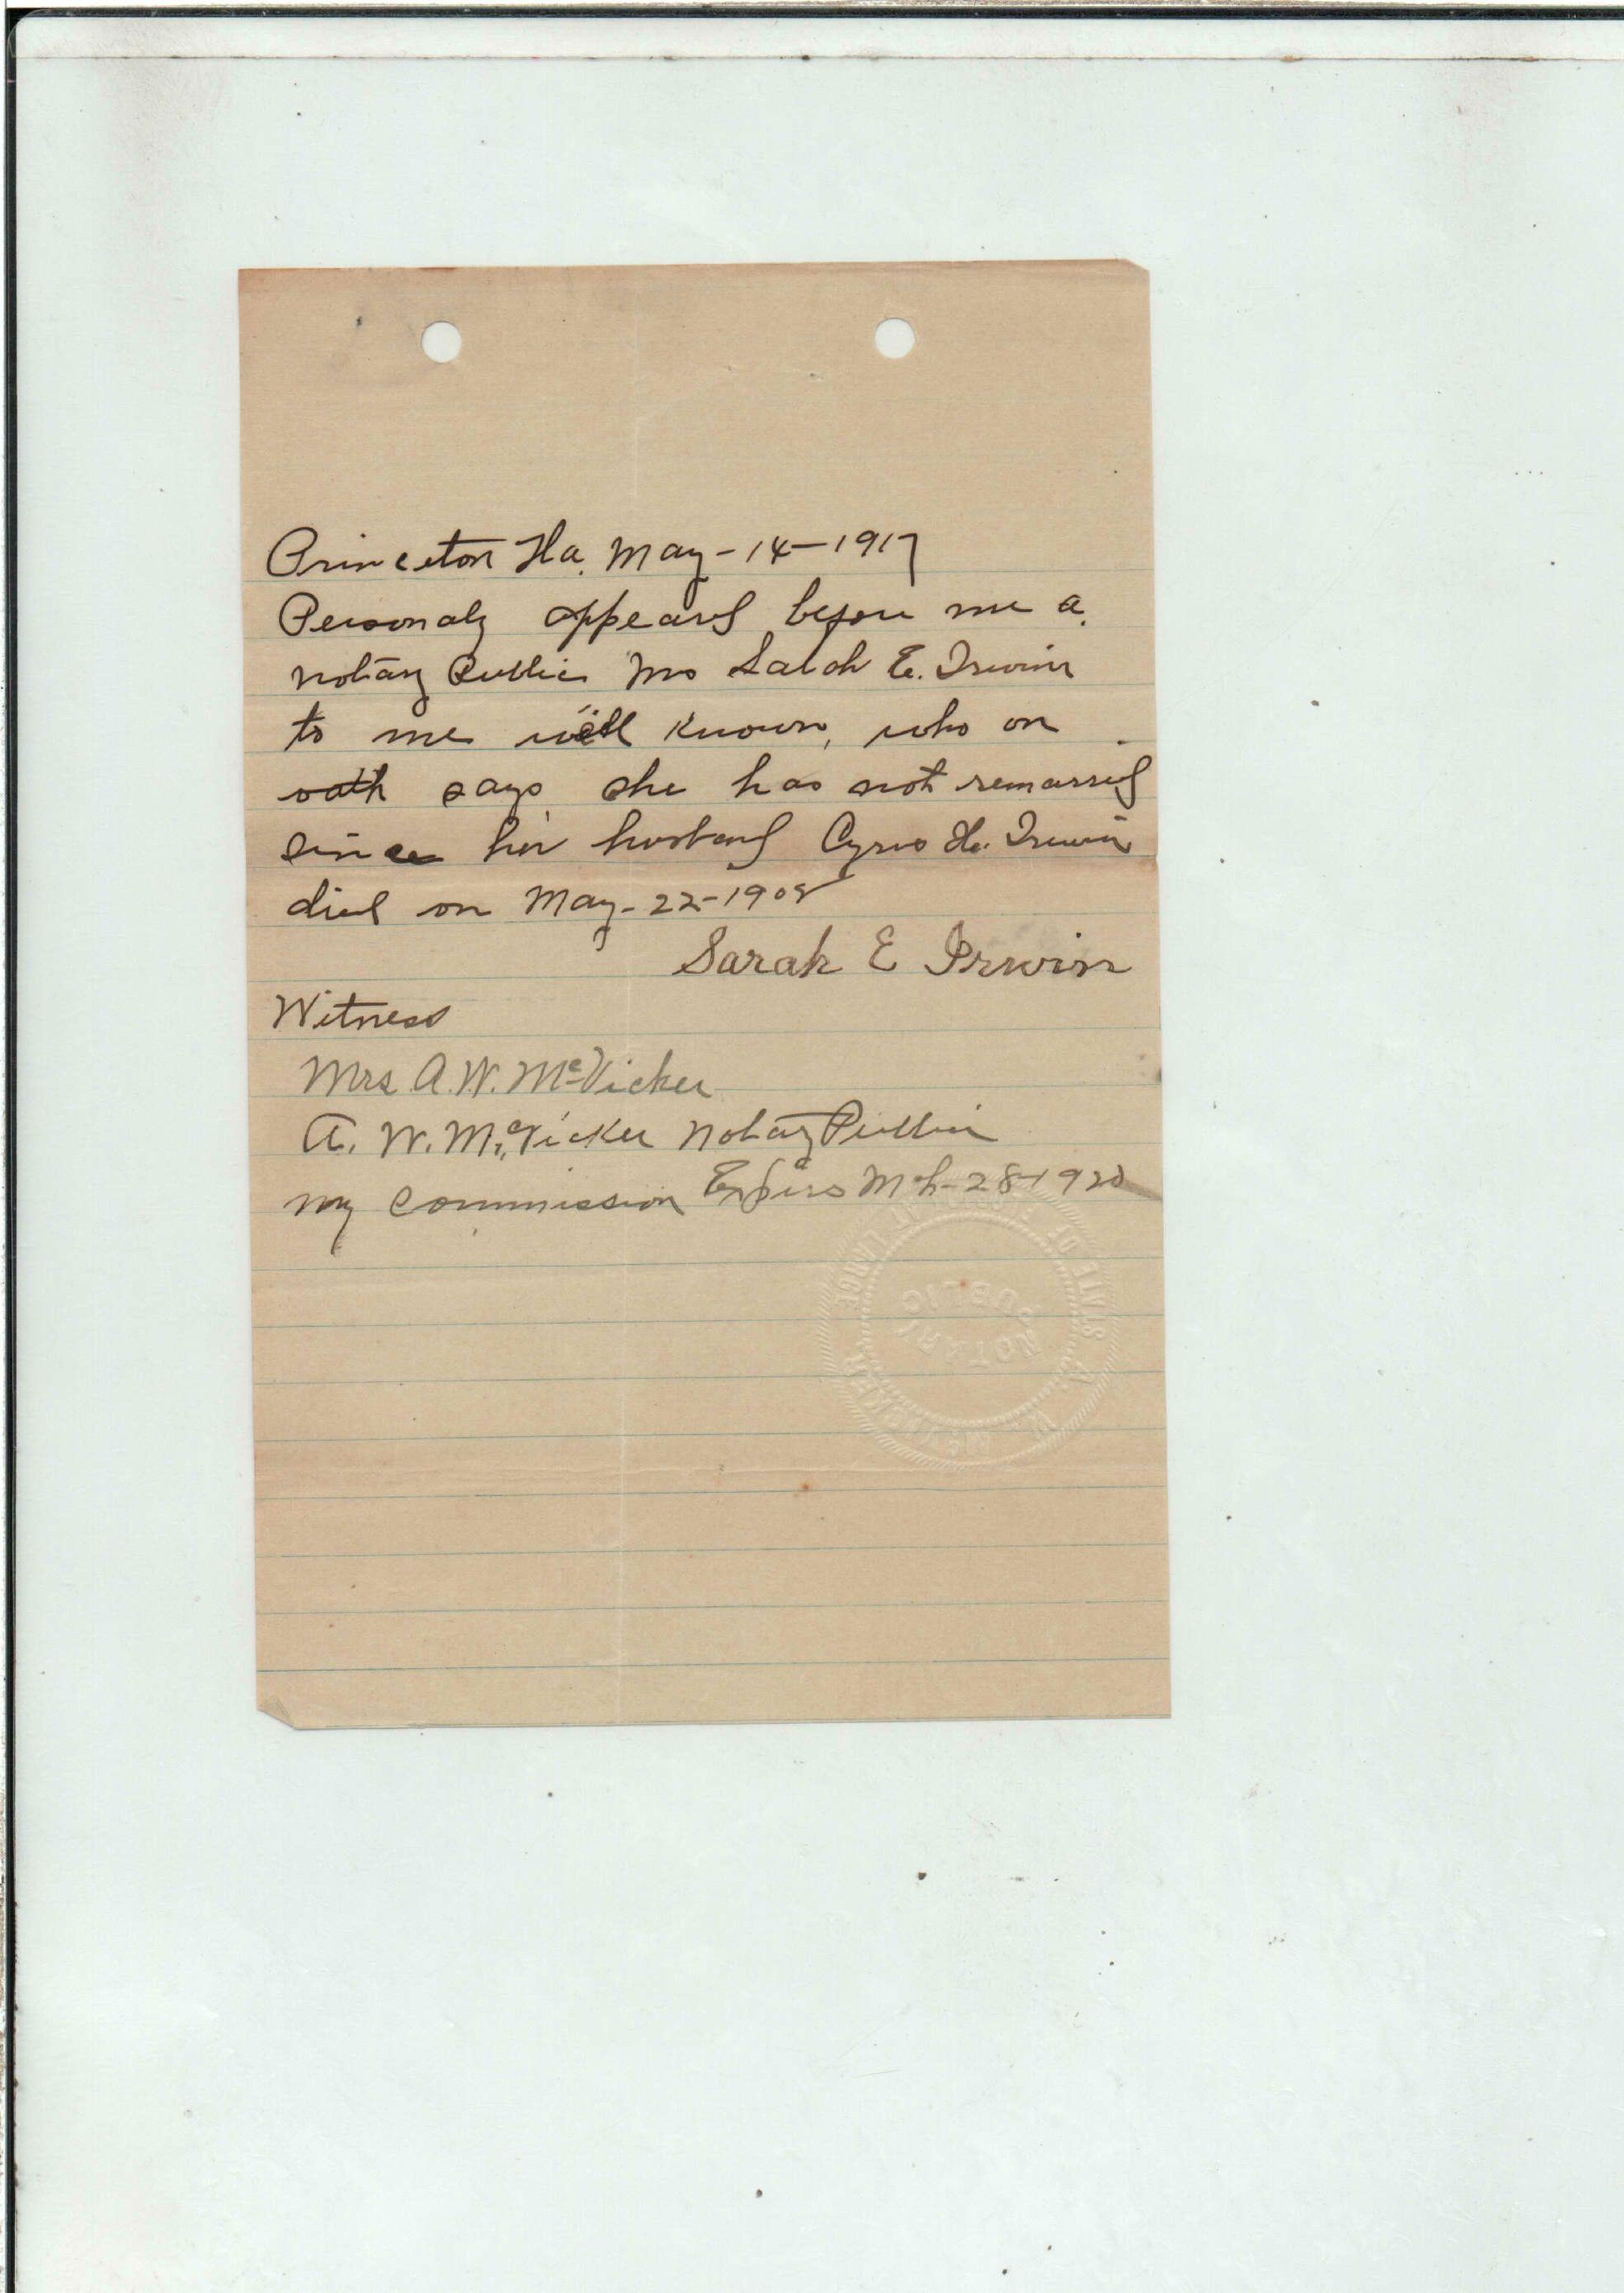 Princeton Fla. May-14-1917
Personaly appeared before me a
notary Public Mrs Sarah E. Irwin
to me well known, who on
oath says she has not remarried
since her husband Cyrus H. Irwin
died on May-22-1908
Sarah E Irwin
Witness
Mrs A.W. McVicker
A. W. McVicker Notary Public
my commission Expires Mch-28-1920
NOTARY
PUBLIC
STATE OF AT LARGE